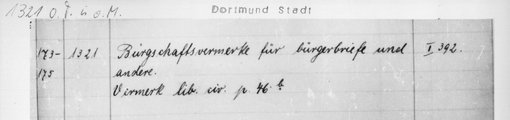 1321 o. T. u. o. M.
Dortmund Stadt
173- 1321 Bürgschaftsvermerke für bürgerbriefe und I 392.
175 andere.
Vermerk lib. civ. p. 46 b